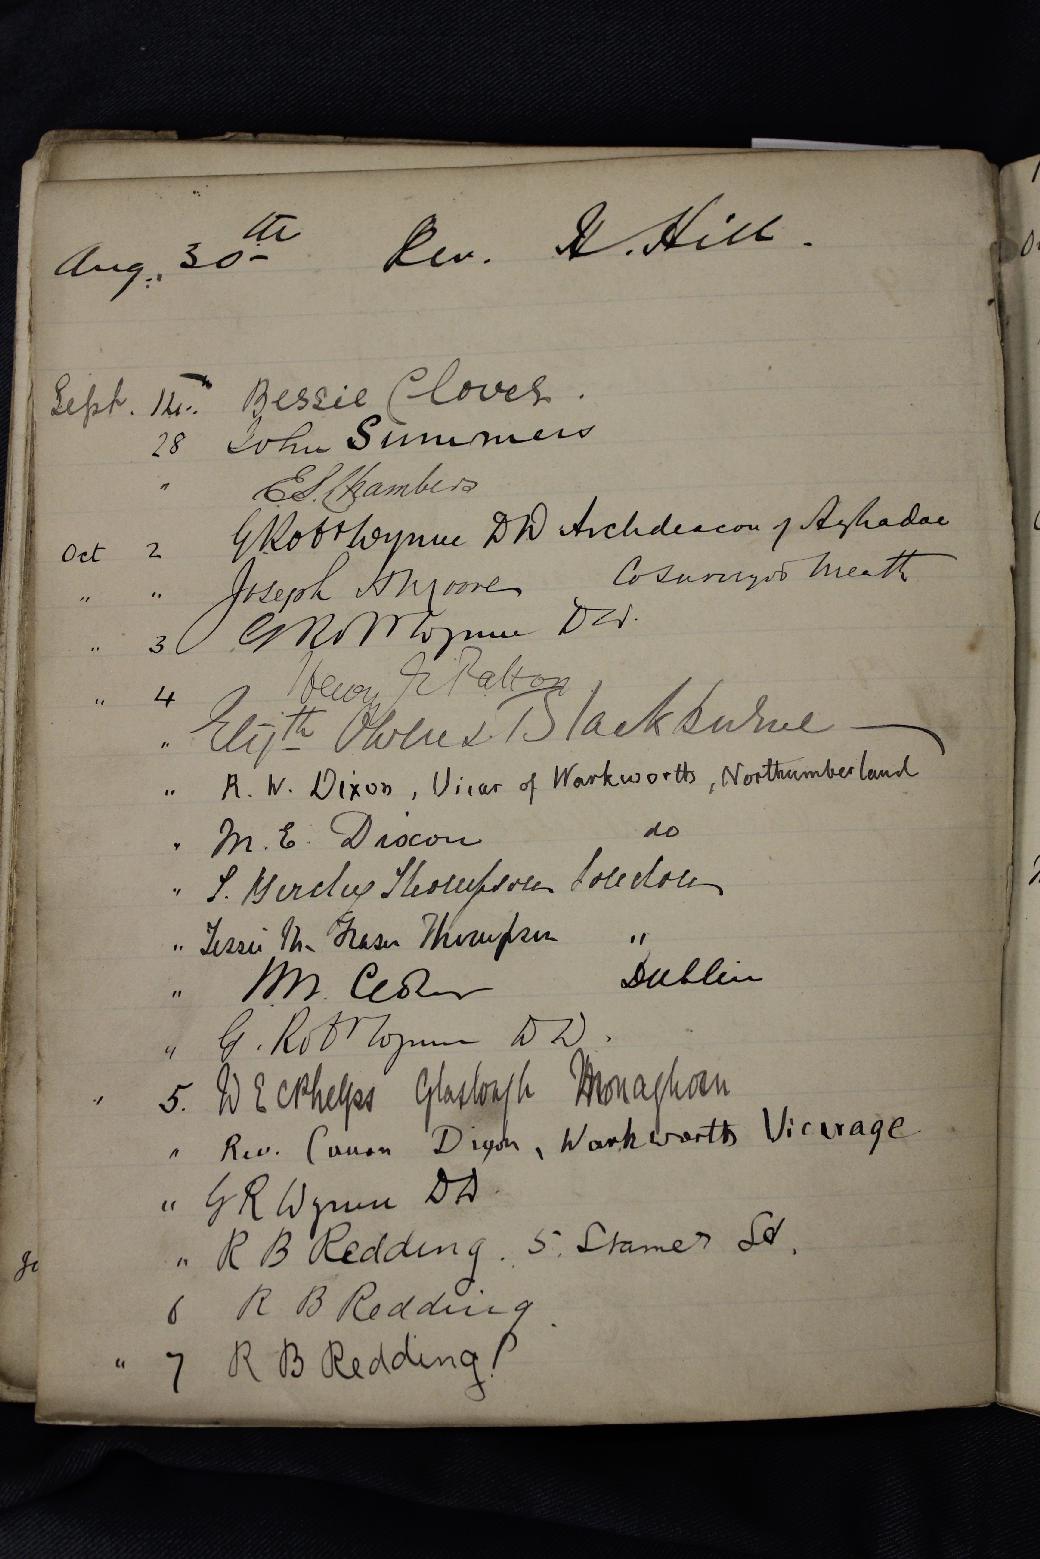 Aug. 30th Rev. H. Hill.
Sept. 12. Bessie Clover.
28 John Summers
" E S. Chambers
Oct 2 G Robt Wynne DD Archdeacon of Aghadoe
" " Joseph H Moore Co Surveyor Meath
" 3 G Robt Wynne DD.
" 4 Henry Dalton
" Elizth Owens Blackburne
" R. W. Dixon, Vicar of Warkworth, Northumberland
" M. E. Dixon do
" S. Thompson London
" Jessie M. Fraser Thompson "
" M. Dublin
" G. Robt Wynne DD.
" 5. W E C Phelps Glaslough Monaghan
" Rev. Canon Dixon, Warkworth Vicarage
" G R Wynne DD
" R B Redding. 5. Stamer St.
6 R B Redding.
" 7 R B Redding!